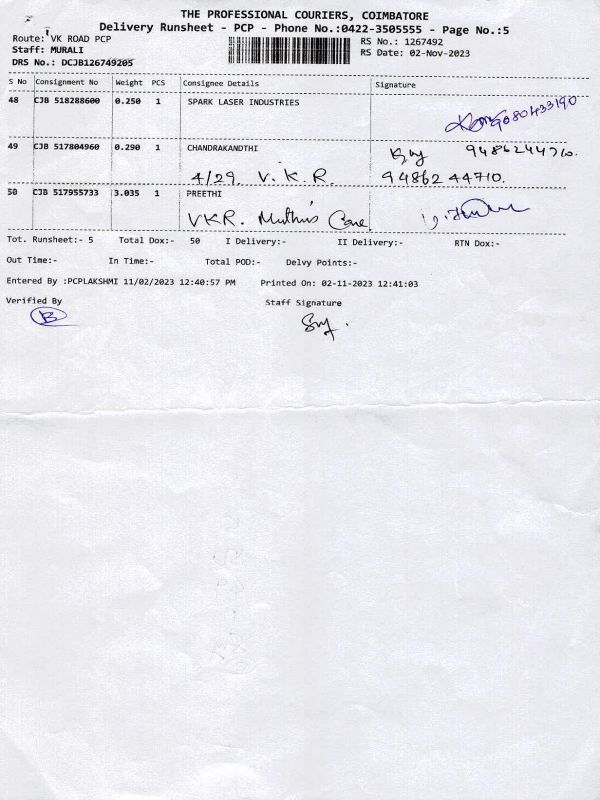 THE PROFESSIONAL COURIERS, COIMBATORE
Delivery Runsheet - PCP - Phone No.:0422-3505555 - Page No.:5
Route: VK ROAD PCP RS No.: 1267492
Staff: MURALI RS Date: 02-Nov-2023
DRS No.: DCJB126749205
S No Consignment No Weight PCS Consignee Details Signature
48 CJB 518288600 0.250 1 SPARK LASER INDUSTRIES
9080433190
49 CJB 517804960 0.290 1 CHANDRAKANDTHI 9486244710.
4/29, V. K. R. 94862 44710.
50 CJB 517955733 3.035 1 PREETHI
VKR. Muthu's
Tot. Runsheet:- 5 Total Dox:- 50 I Delivery:- II Delivery:- RTN Dox:-
Out Time:- In Time:- Total POD:- Delvy Points:-
Entered By :PCPLAKSHMI 11/02/2023 12:40:57 PM Printed On: 02-11-2023 12:41:03
Verified By Staff Signature
B